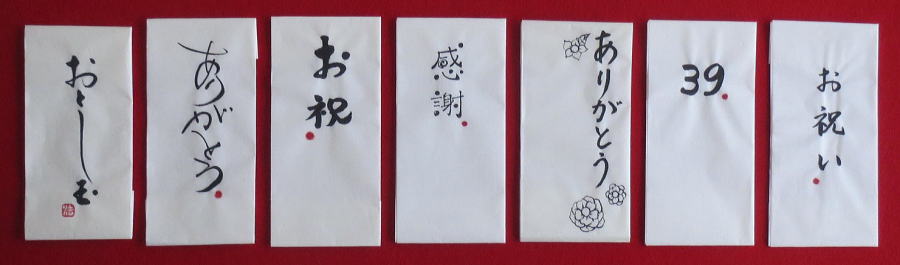 おとし玉
ありがとう
お祝
感謝
ありがとう
39
お祝い